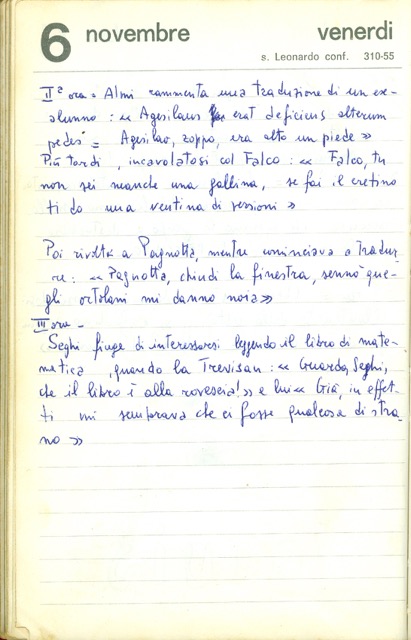 6 novembre venerdi
s. Leonardo conf. 310-55
IIª ora = Almi rammenta una traduzione di un ex-
alunno : « Agesilaus erat deficiens alterum
pedes = Agesilao, zoppo, era alto un piede »
Più tardi , incavolatosi col Falco : « Falco, tu
non sei neanche una gallina, se fai il cretino
ti do una ventina di sessioni »
Poi rivolta a Pagnotta, mentre cominciava a tradur
re : « Pagnotta, chiudi la finestra, sennò que-
gli ortolani mi danno noia »
III ora -
Seghi finge di interessarsi leggendo il libro di mate-
matica , quando la Trevisan : « Guarda, Seghi,
che il libro è alla rovescia! » e lui « Già, in effet-
ti mi sembrava che ci fosse qualcosa di stra
no »